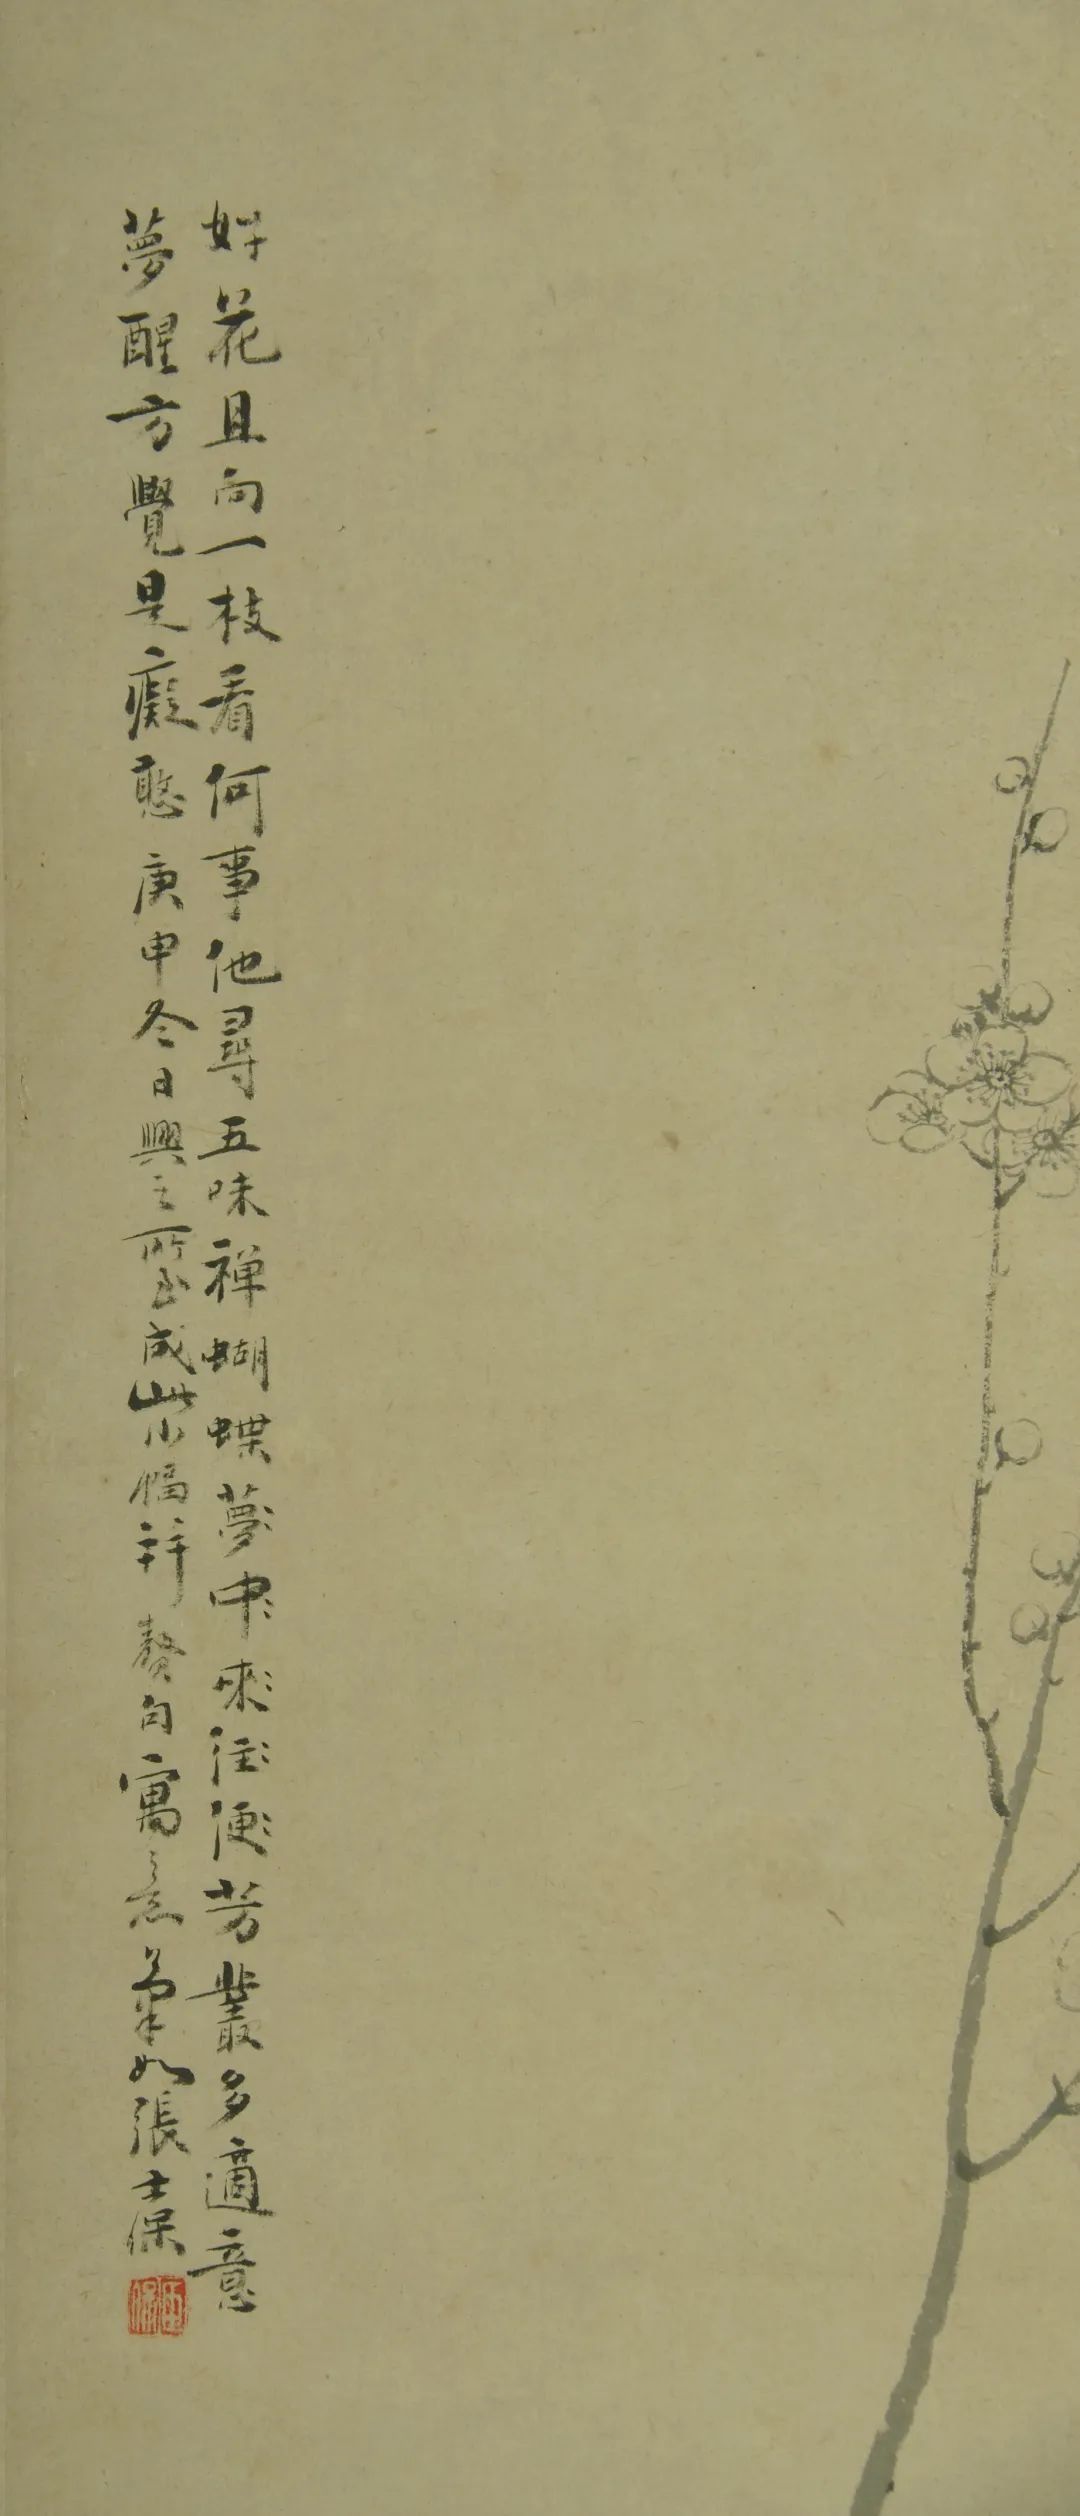 好花且向一枝看何事他尋五味禪蝴蝶夢〻中〻來〻往〻便〻芳叢多適意
夢醒方覺是癡憨庚申冬日興之所至成此小幅并贅句寓意菊如張士保